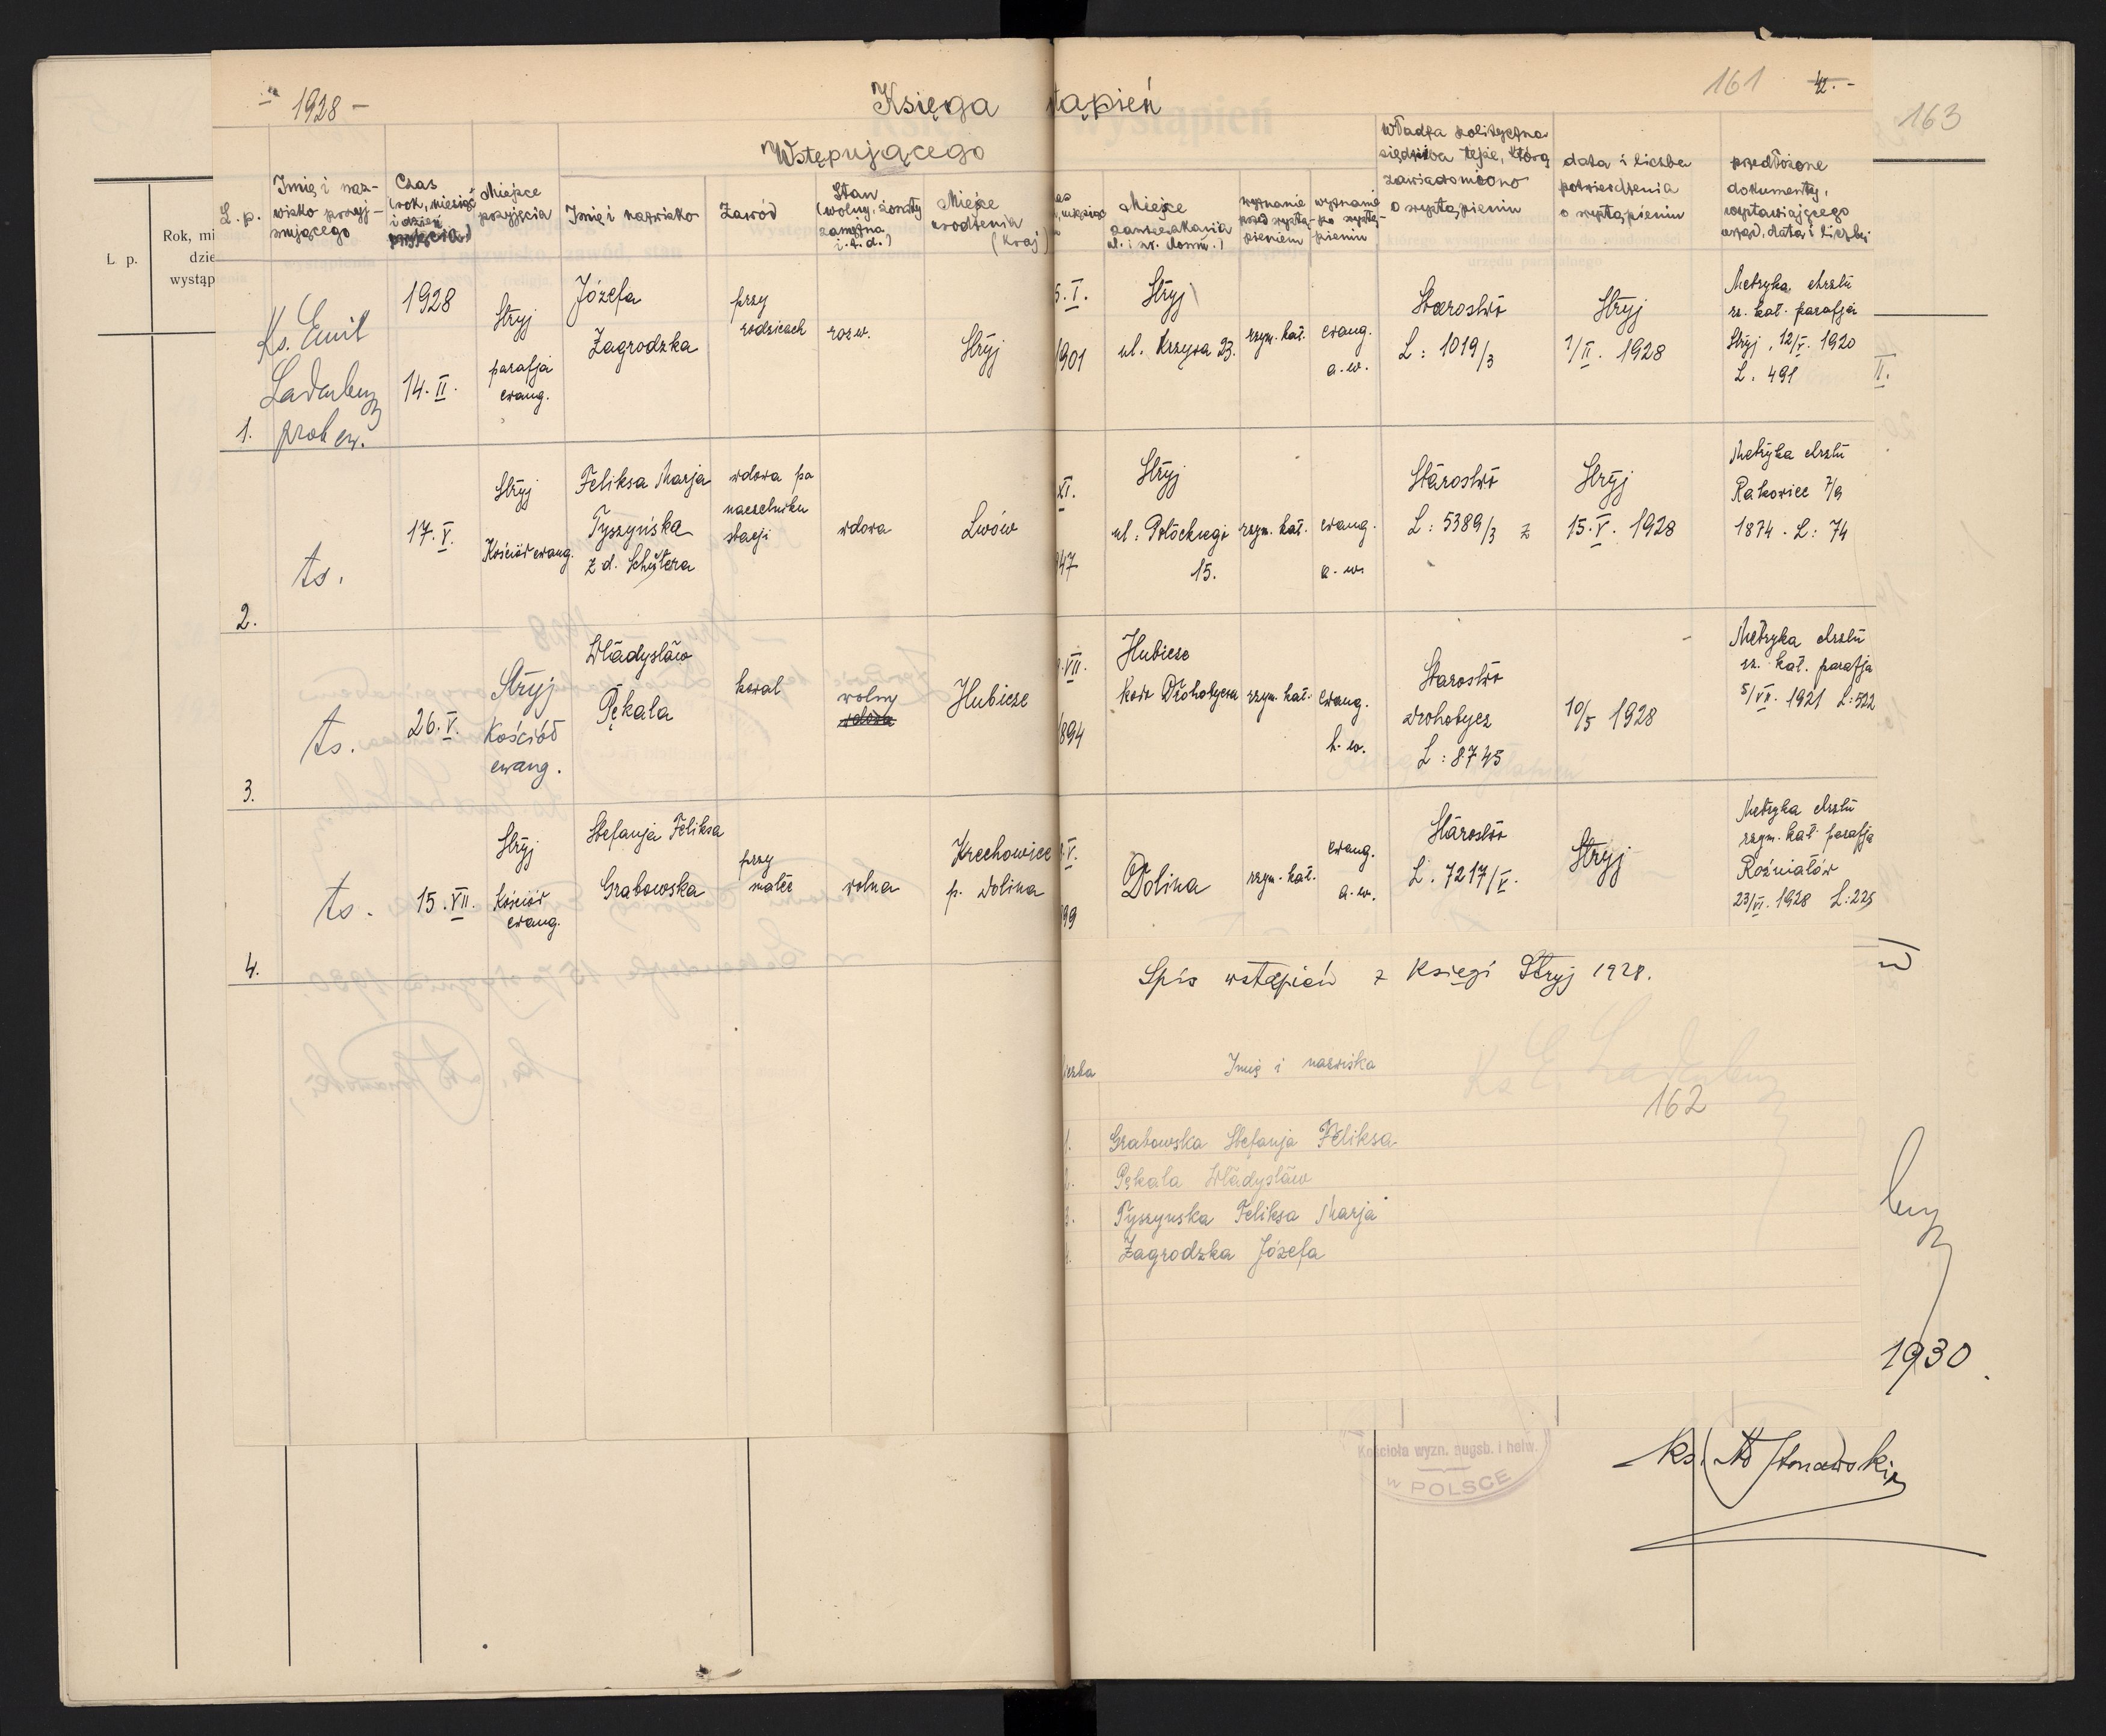 1928 –
Księga
tąpień
161
42. –
163
Wstępującego
L. p.
Imię i naz-
wisko przyj-
mującego
Czas
(rok, miesiąc
i dzień
przyjęcia)
Miejsce
przyjęcia
Imię i nazwisko
Zawód
Stan
(wolny, żonaty
zamężna
i.t.d.)
Miejsce
urodzenia
(kraj)
Miejsce
zamieszkania
ul. i nr. domu.)
wyznanie
przed wystą-
pieniem
wyznanie
po wystą-
pieniu
Władza polityczna
siedziba tejże, którą
zawiadomiono
o wystąpieniu
data i liczba
potwierdzenia
o wystąpieniu
przedłożone
dokumenty,
wystawiającego
urząd, data i liczba
L. p.
Rok, mi
dzie
wystąp
1.
Ks. Emil
Ladenberger
prob ew.
1928
14. II.
Stryj
parafja
ewang.
Józefa
Zagrodzka
przy
rodzicach
rozw.
Stryj
5. I.
1901
Stryj
ul. Krzywa 23.
rzym. kat.
ewang.
a. w.
Starostwo
L: 1019/3
Stryj
1/II. 1928
Metryka chrztu
rz. kat. parafja
Stryj, 12/V. 1920
L. 491
II.
2.
ts.
17. V.
Stryj
Kościół ewang.
Feliksa Marja
Tyszyńska
z d. Schütera
wdowa po
naczelniku
stacji
wdowa
Lwów
XI.
47
Stryj
ul. Potockiego
15.
rzym. kat.
ewang.
a. w.
Starostwo
L: 5389/3 z
Stryj
15. V. 1928
Metryka chrztu
Rakowice 7/9
1874. L: 74
3.
ts.
26. V.
Stryj
Kościół
ewang.
Władysław
Pękala
kowal
wolny
wdowa
Hubicze
. VII.
1894
Hubicze
koło Drohobycza
rzym. kat.
ewang.
h. w.
Starostwo
Drohobycz
L: 8745
10/5 1928
Metryka chrztu
rz. kat. parafja
5/VII. 1921 L: 522
4.
ts.
15. VII.
Stryj
Kościół
ewang.
Stefanja Feliksa
Grabowska
przy
matce
wolna
Krechowice
p. Dolina
. V.
99
Dolina
rzym. kat.
ewang.
a. w.
Starostwo
L. 7217/V.
Stryj
Metryka chrztu
rzym. kat. parafja
Rożniatów
23/VI. 1928 L: 225
Spis wstąpień z Księgi Stryj 1928.
Imię i nazwiska
162
Grabowska Stefanja Feliksa
2. Pękala Władysław
3. Tyszynska Feliksa Marja
Zagrodzka Józefa
1930.
Kościoła wyzn. augsb. i helw.
w POLSCE
ks.